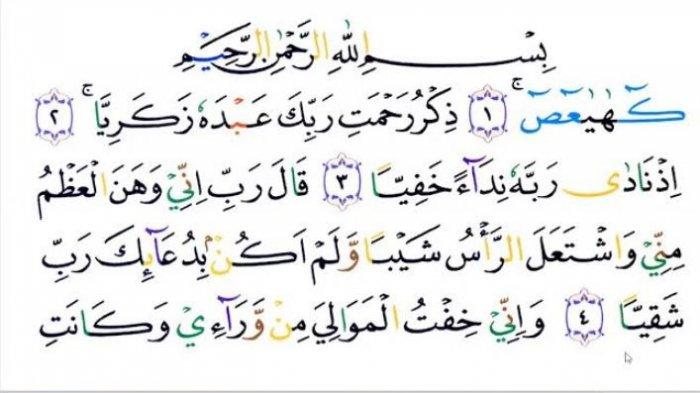 بِسْمِ اللّٰهِ الرَّحْمٰنِ الرَّحِيْمِ
كۤهٰيٰعۤصۤ ۚ ١ ذِكْرُ رَحْمَتِ رَبِّكَ عَبْدَهٗ زَكَرِيَّا ۚ ٢
اِذْ نَادٰى رَبَّهٗ نِدَاۤءً خَفِيًّا ٣ قَالَ رَبِّ اِنِّيْ وَهَنَ الْعَظْمُ
مِنِّيْ وَاشْتَعَلَ الرَّأْسُ شَيْبًا وَّلَمْ اَكُنْۢ بِدُعَاۤىِٕكَ رَبِّ
شَقِيًّا ٤ وَاِنِّيْ خِفْتُ الْمَوَالِيَ مِنْ وَّرَاۤءِيْ وَكَانَتِ